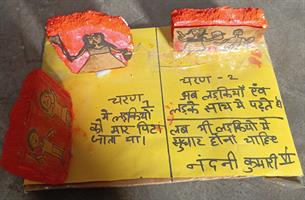 चरण 1
मे लड़कियों
को मार पिटा
जाता था।
चरण - 2
अब लड़कियों एवं
लड़के साथ मे पढ़ते है
लब भी लड़कियो मे
सुधार होना चाहिए
नंदनी कुमारी VI